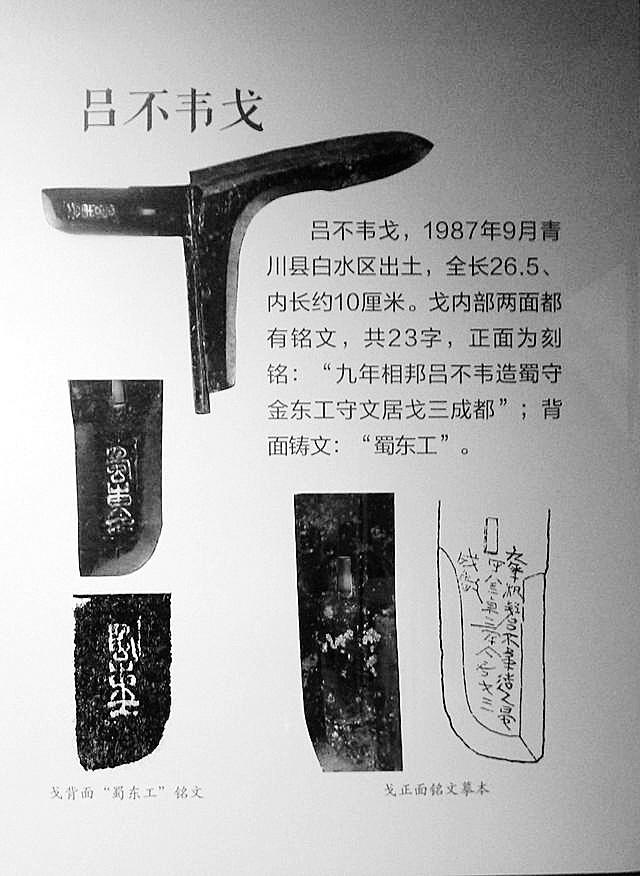 吕不韦戈
吕不韦戈，1987年9月青
川县白水区出土，全长26.5、
内长约10厘米。戈内部两面都
有铭文，共23字，正面为刻
铭：“九年相邦吕不韦造蜀守
金东工守文居戈三成都”；背
面铸文：“蜀东工”。
蜀东工
蜀东工
戈背面“蜀东工”铭文
戈正面铭文摹本